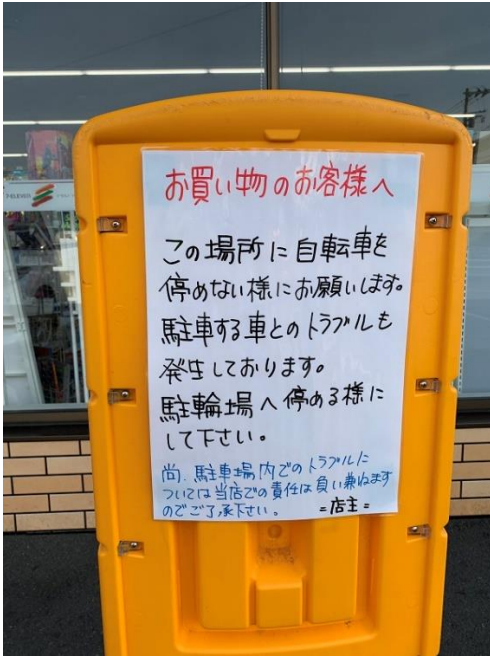 お買い物のお客様へ
この場所に自転車を
停めない様にお願いします。
駐車する車とのトラブルも
発生しております。
駐輪場へ停める様に
して下さい。
尚、駐車場内でのトラブルに
ついては当店での責任は負い兼ねます
のでご了承下さい。 =店主=